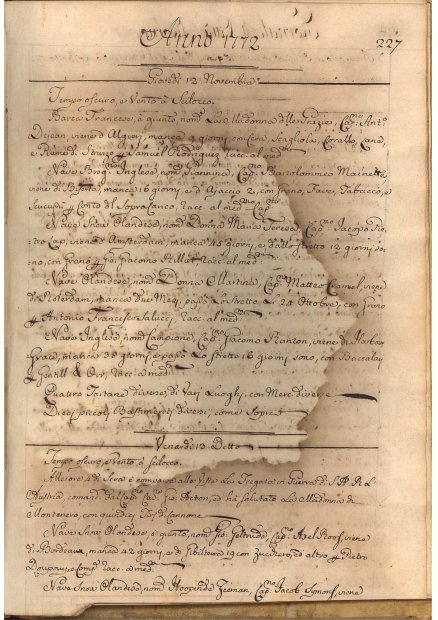 Anno 1772
227
Giovedì 12 Novembre
Tempo oscuro, e Vento à Scilocco.
Barca Francese, è giunto, nomta La Madonna delle Grazie, Capno Anto
Dejean, viene di Algeri, manca 9 giorni con Cera, Scagliola, Corallo, Lana,
e Piume di Struzzo p Samuel Rodriguez racc. al medmo
Nave Inglese nomta Giannina, Capno Bartolommeo Mainetto
viene di manca 16 giorni, e d'Ajaccio 2, con Grano, Fave, Tabacco, e
p conto del Sopracarico, racc. al medmo Capno
Nave Snow Olandese, nomta Donna Maria Teresa, Capno Jacopo
viene d'Amsterdam, manca 45 giorni, e dallo Stretto 12 giorni
con Grano p Gio: Giacomo racc. al medmo
Nave Olandese, nomta Donna Martina, Capno Matteo viene
di Roterdam, manca due Mesi, passò Lo Stretto Li 24 Ottobre, con Grano
p Antonio Francesco Salucci racc. al medmo
Nave Inglese nomta Campione, Capno Giacomo Stanton, viene di Harbour
Grace, manca 38 giorni e passò Lo Stretto 16 giorni sono, con Baccalay
p Gentill & Orr, racc. a medmi
Quattro Tartane diverse, di Varj Luoghi, con Merci diverse
Dieci piccoli Bastimenti diversi, come Sopra
Venerdì 13 Detto
Tempo oscuro, e Vento à Scilocco.
Alle ore 4 di Sera è comparsa alla Vista La Fregata in Guerra di S. A. R. L'
Austria, comandta dal Capno Gio: Acton, e ha salutato La Madonna di
Montenero, con quindici Tiri di Cannone
Nave Snow Olandese, è giunto, nomta Geltruda, Capno Axel Roos, viene
di Bordeaux, manca 42 giorni, e di Gibilterra 19 con Zucchero, ed altro p Pietro
e Compi racc. a medmi
Nave Snow Olandese, nomta Hoopende Zeeman, Capno Jacob Symons, viene